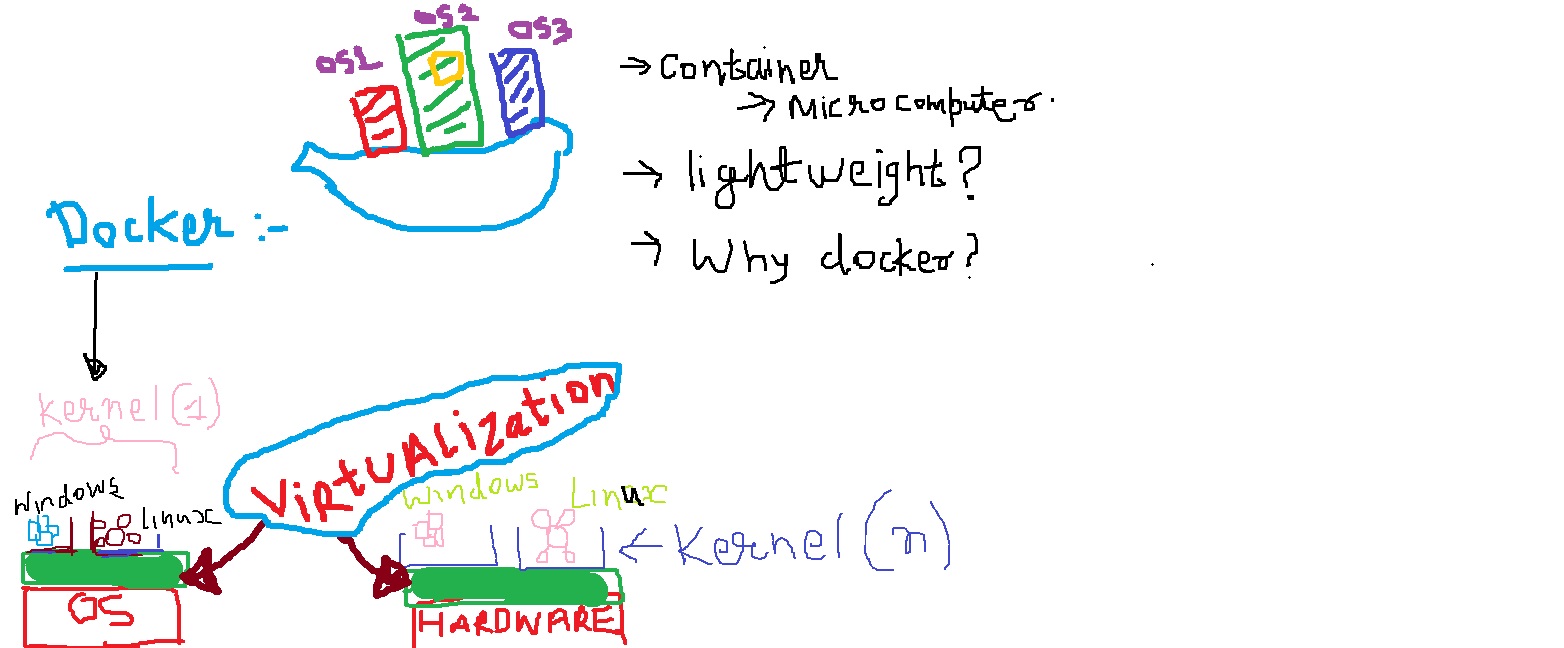 OS1
OS2
OS3
→ Container
→ Microcomputer.
→ lightweight?
→ Why docker?
Docker :-
Kernel (1)
VIRTUALIZation
Windows
Linux
OS
Windows
Linux
← Kernel (n)
HARDWARE